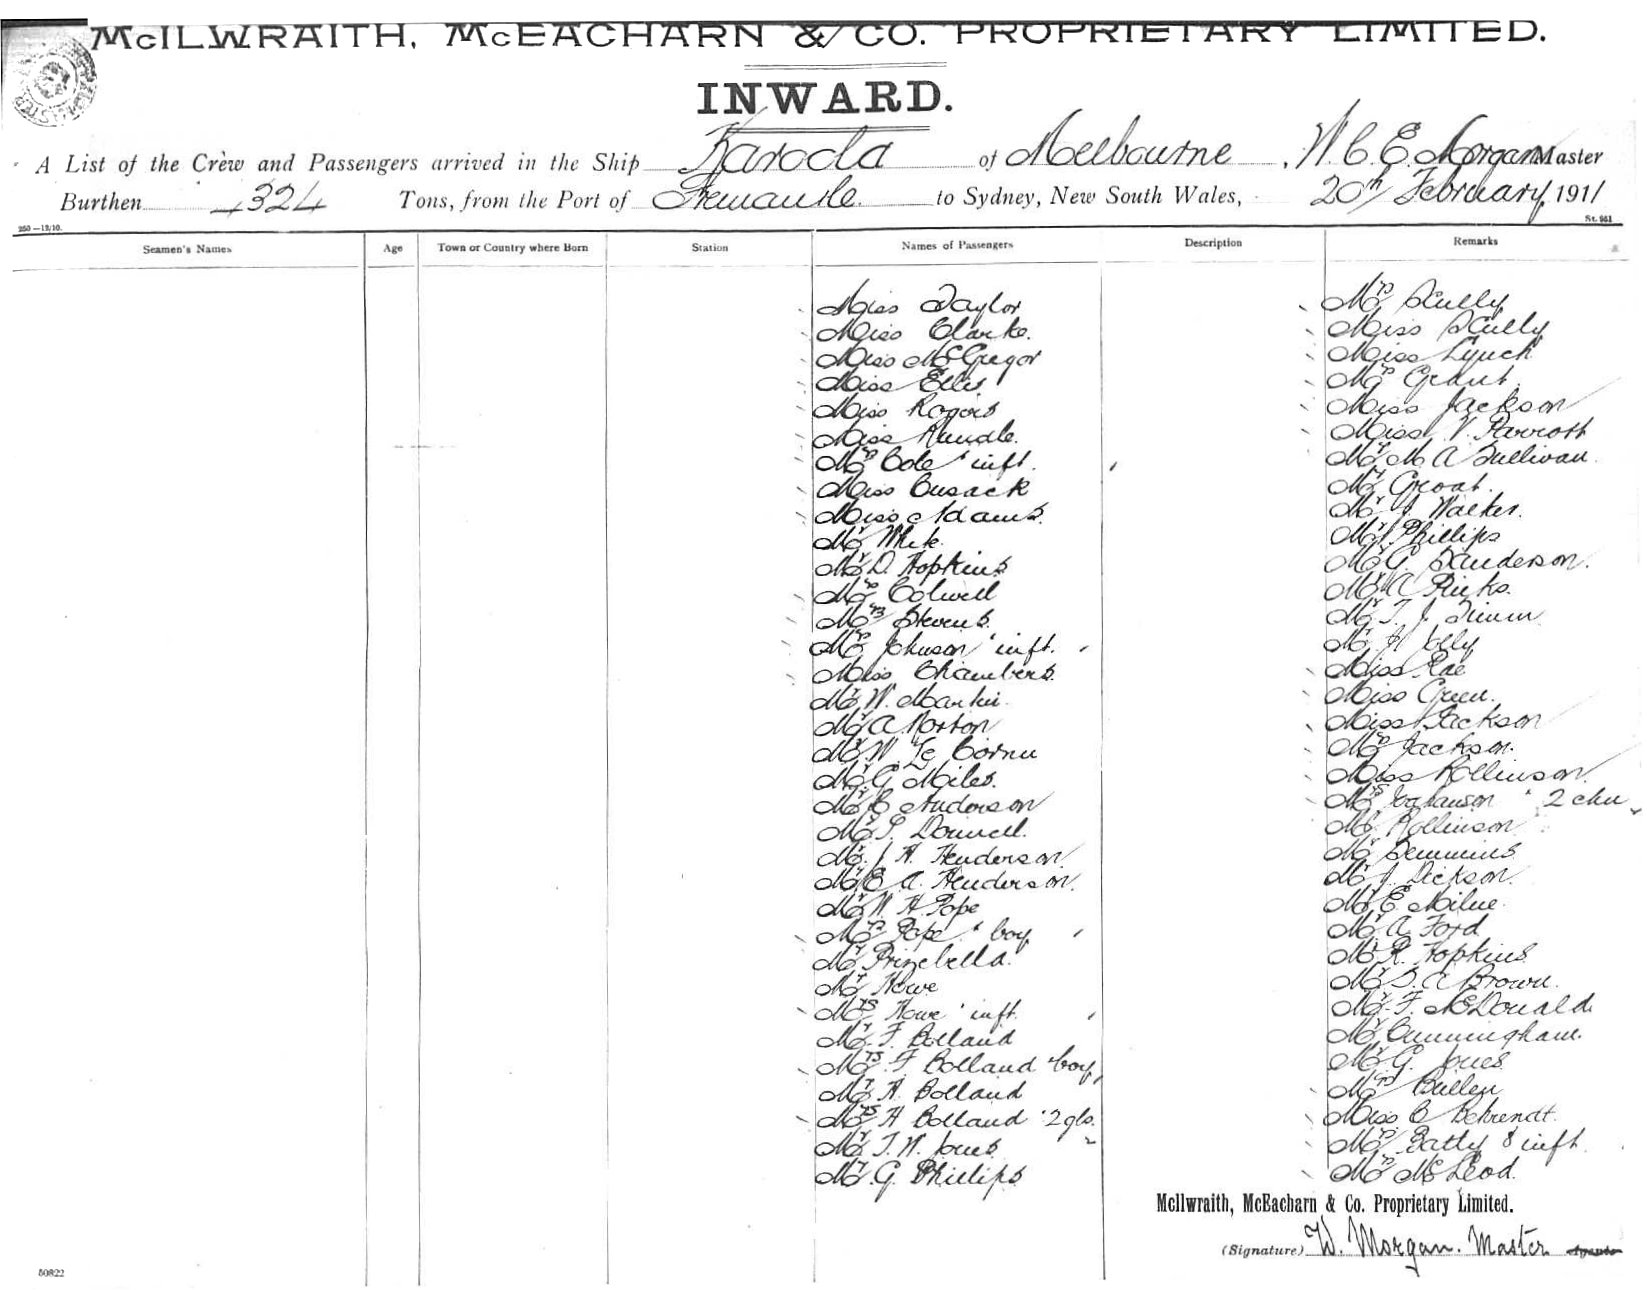 McILWRAITH, McEACHARN & CO. PROPRIETARY LIMITED.
INWARD.
A List of the Crew and Passengers arrived in the Ship Karoola of Melbourne, W. C. E. Morgan Master
Burthen 4324 Tons, from the Port of Fremantle to Sydney, New South Wales, 20th February 1911
250—12/10. St. 951
Seamen's Names Age Town or Country where Born Station Names of Passengers Description Remarks
Miss Taylor
Miss Clarke.
Miss McGregor
Miss Ellis
Miss Rogers
Miss Rundle.
Mrs Cole & inft.
Miss Cusack
Miss Adams.
Mr White
Mr D. Hopkins
Mrs Colwell
Mrs Stevens.
Mrs Johnson & inft.
Miss Chambers.
Mr W. Martin
Mr A Norton
Mr W. Le Cornu
Mr G. Miles.
Mr C Anderson
Mr S.
Mr J. H. Henderson
Mr E. A. Henderson.
Mr W. H Pope
Mrs Pope & boy
Mr Prinebella.
Mr Howe
Mrs Howe & inft.
Mr F. Bolland
Mrs F Bolland & boy
Mr H. Bolland
Mrs H Bolland & 2 gls.
Mr T. W. Jones
Mr G. Phillips
Mrs Scully
Miss Scully
Miss Lynch
Mrs Grant
Miss Jackson
Miss V. Parrott
Mr M A Sullivan
Mr Groat.
Mr J. Walker.
Mr Phillips
Mr G. Sanderson.
Mr A Ricks.
Mr T. J.
Mr Jolly
Miss Rae
Miss Green.
Miss Jackson
Mrs Jackson.
Miss Rollinson
Mrs Johanson & 2 chn
Mr Rollinson
Mr Semmins
Mr J. Dickson.
Mr E Milne.
Mr A Ford
Mr R. Hopkins
Mr S. A Brown.
Mr F. McDonald
Mr Cunningham.
Mr G. Jones
Mrs Bullen
Miss C Behrendt.
Mrs Batty & inft.
Mrs McLeod.
McIlwraith, McEacharn & Co. Proprietary Limited.
(Signature) W. Morgan. Master
50822